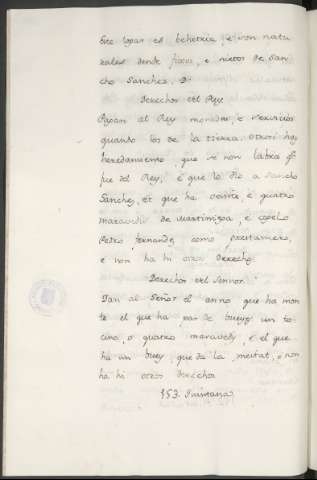 Este logar es behetria, e son natu
rales dende fijos, e nietos de San
cho Sanchez. D.
Derechos del Rey.
Pagan al Rey monedas, e servicios
quando los de la tierra. Otrosi hay
heredamiento, que se non labra q
fue del Rey, e que lo dio a Sancho
Sanchez, et que ha veinte, e quatro
maravedis de martiniega, e
Pedro Fernandez como prestamero,
e non ha hi otro derecho
Derechos del Señor.
Dan al Señor el anno que ha mon
te el que ha par de bueys un to
cino, o quatro maravedis, e el que
ha un buey, que da la meitat, e non
ha hi otros derechos
153. Quintana.